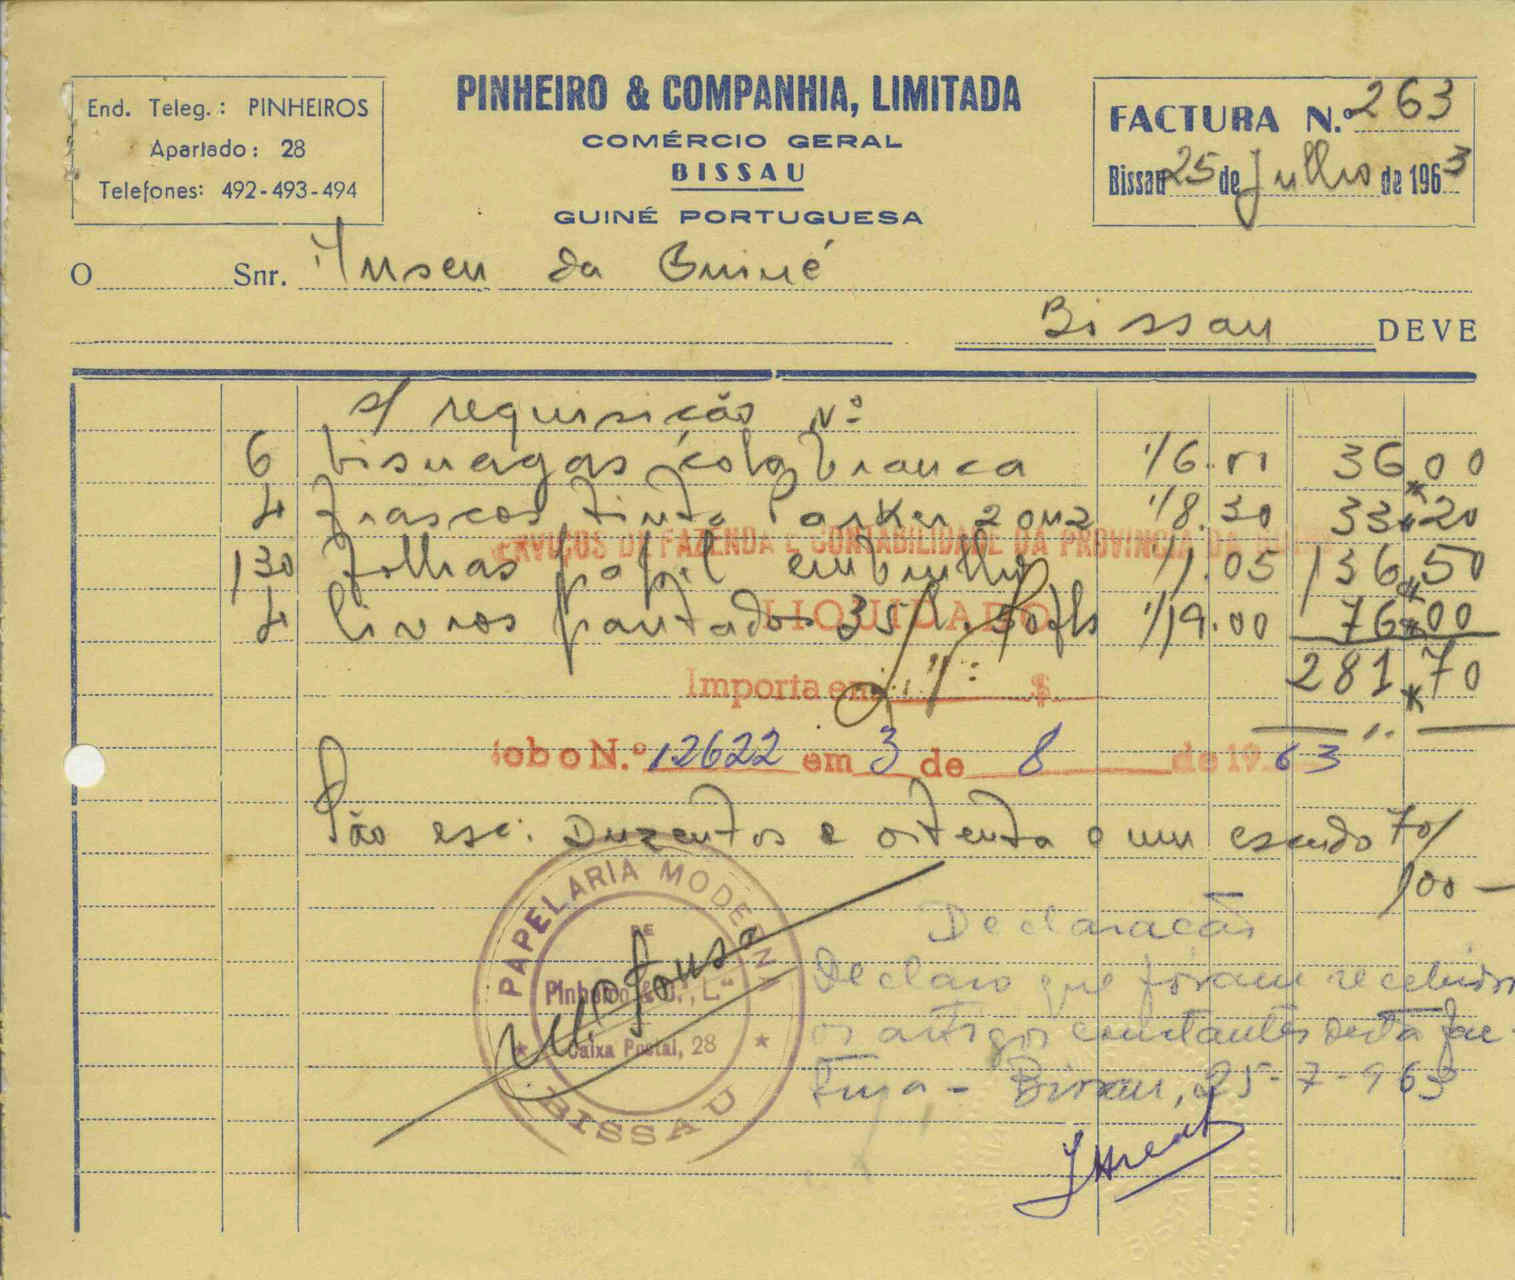 End. Teleg.: PINHEIROS
Apartado: 28
Telefones: 492-493-494
PINHEIRO & COMPANHIA, LIMITADA
COMÉRCIO GERAL
BISSAU
GUINÉ PORTUGUESA
FACTURA N.º 263
Bissau 25 de Julho de 1963
O Snr. Museu da Guiné
Bissau DEVE
s/ requisição Nº
6 bisnagas cola branca 1/6.00 36,00
4 frascos tinta Parker 2 onz 1/8.30 33,20
SERVIÇOS DE FAZENDA E CONTABILIDADE DA PROVINCIA DA
130 folhas papel embrulho 1/1.05 136,50
4 livros pautados 35/ 1/19.00 76,00
LIQUIDADO
281,70
Importa em $
N.º 12622 em 3 de 8 de 1963
São esc: Duzentos e oitenta e um escudos 70/100 —
PAPELARIA MODERNA
DE
Pinheiro & C.ª, L.da
Caixa Postal, 28
BISSAU
Declaração
Declaro que foram recebidos
os artigos constantes desta fac-
tura - Bissau, 25-7-963